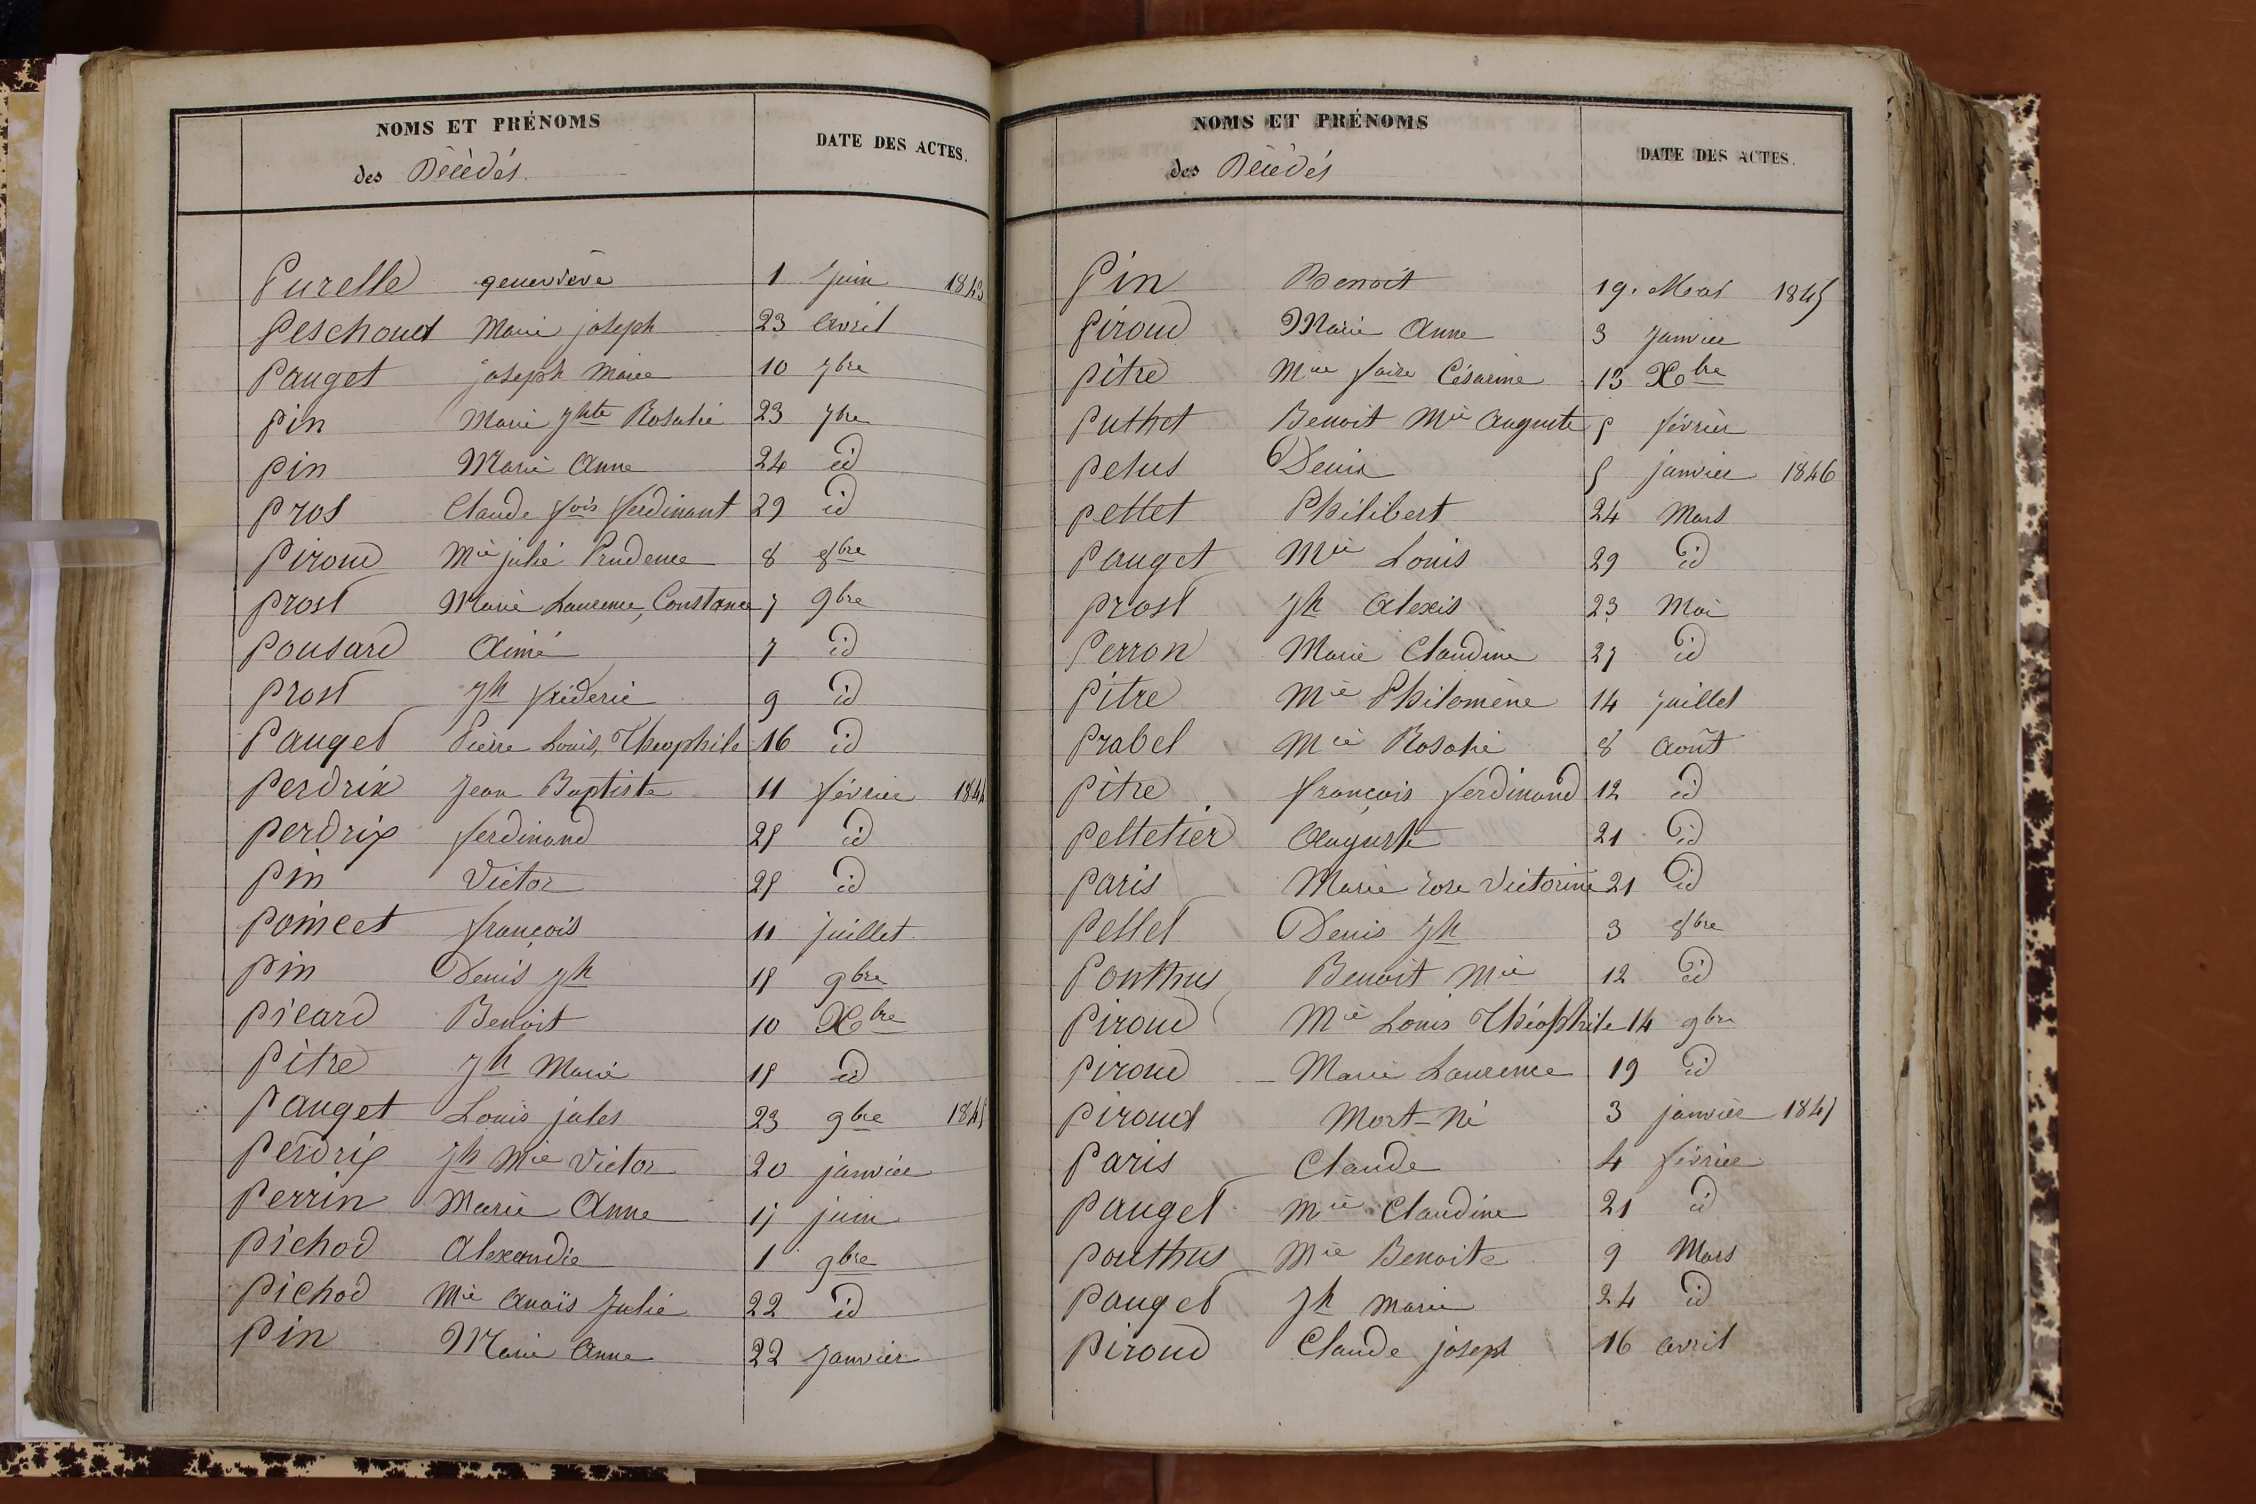 NOMS ET PRÉNOMS
des Décédés. DATE DES ACTES.
Purelle geneviève 1 Juin 1843
Peschoud Marie joseph 23 avril
Pauget joseph Marie 10 7bre
Pin Marie Jhte Rosalie 23 7bre
Pin Marie Anne 24 id
Pros Claude fois ferdinant 29 id
Piroud Mie julie Prudence 8 8bre
Prost Marie Laurence, Constance 7 9bre
Pousard Aimé 7 id
Prost Jh fréderic 9 id
Pauget Pierre Louis, Théophile 16 id
Perdrix Jean Baptiste 11 février 1844
Perdrix ferdinand 25 id
Pin Victor 25 id
Poincet françois 11 juillet
Pin Denis Jh 15 9bre
Picard Benoit 10 Xbre
Pitre Jh Marie 15 id
Pauget Louis jules 23 9bre 1845
Perdrix Jh Mie Victor 20 janvier
Perrin Marie Anne 17 juin
Pichod Alexandre 1 9bre
Pichod Mie Anaïs Julie 22 id
Pin Marie Anne 22 Janvier
NOMS ET PRÉNOMS
des Décédés DATE DES ACTES.
Pin Benoît 19. Mai 1845
Piroud Marie Anne 3 Janvier
Pitre Mie Césarine 13 Xbre
Puthet Benoit Mie Auguste 5 février
Petus Denis 5 janvier 1846
Pettet Philibert 24 Mars
Pauget Mie Louis 29 id
Prost Jh Alexis 23 Mai
Perron Marie Claudine 27 id
Pitre Mie Philomène 14 Juillet
Prabel Mie Rosalie 8 Août
Pitre françois ferdinand 12 id
Pelletier Auguste 21 id
Paris Marie rose Victorine 21 id
Pellet Denis Jh 3 8bre
Ponthus Benoit Mie 12 id
Piroud Mie Louis Théophile 14 9bre
Piroud Marie Laurence 19 id
Piroud Mort-Né 3 janvier 1847
Paris Claude 4 février
Pauget Mie Claudine 21 id
Ponthus Mie Benoite 9 Mars
Pauget Jh Marie 24 id
Piroud Claude joseph 16 avril